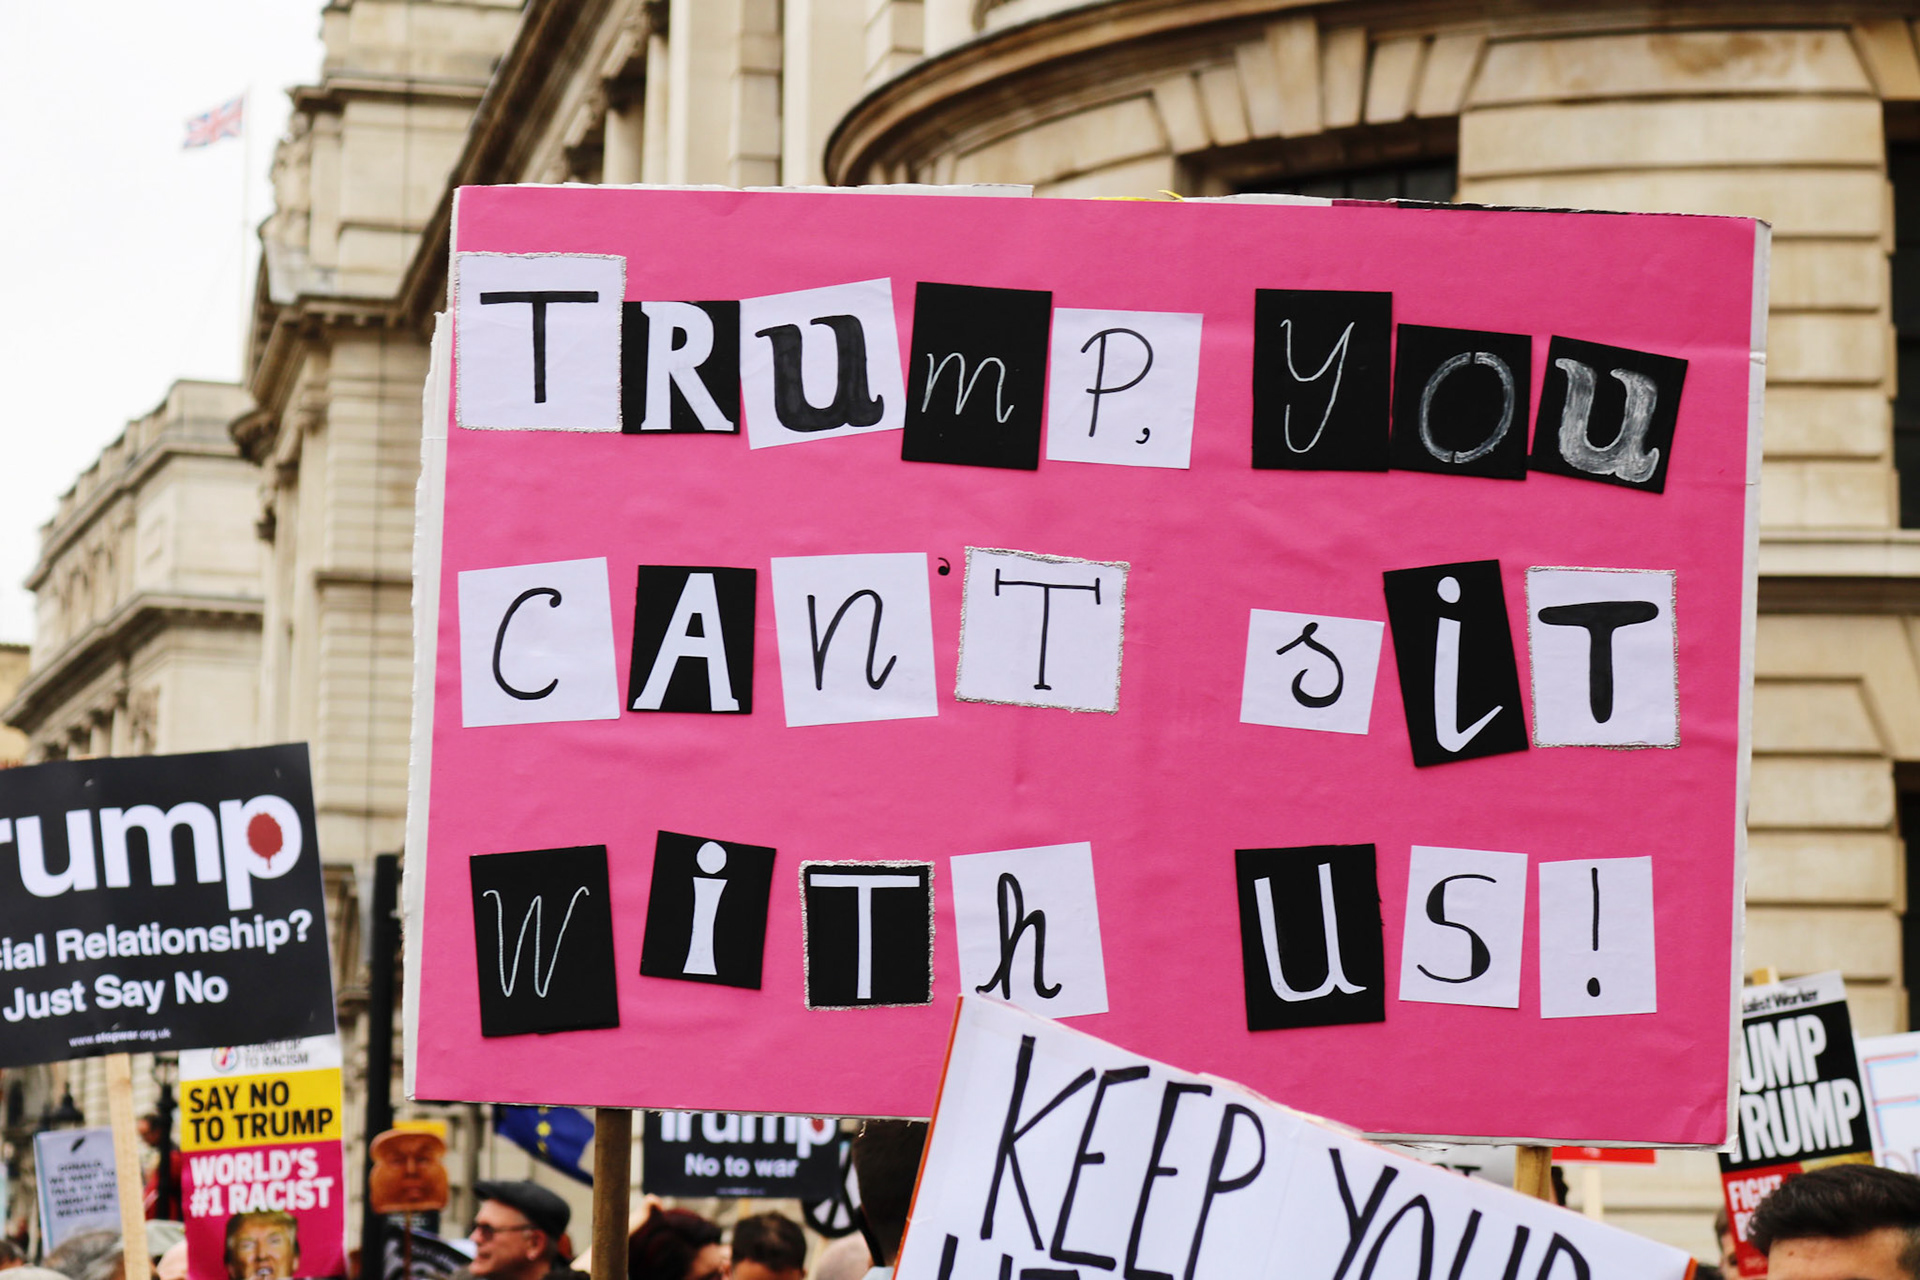 TRump, you
CAn'T siT
wiTh us!
rump
cial Relationship?
Just Say No
www.stopwar.org.uk
STAND UP
TO RACISM
SAY NO
TO TRUMP
WORLD'S
#1 RACIST
Trump
No to war
KEEP YOUR
alist Worker
UMP
TRUMP